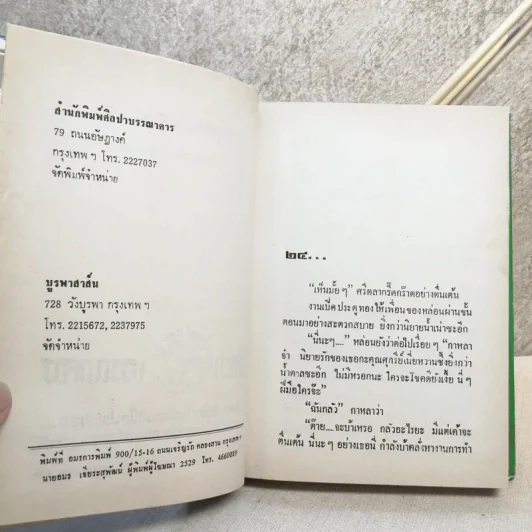 สำนักพิมพ์ศิลปาบรรณาคาร
79 ถนนอัษฎางค์
กรุงเทพ ฯ โทร. 2227037
จัดพิมพ์จำหน่าย
บูรพาสาส์น
728 วังบูรพา กรุงเทพ ฯ
โทร. 2215672, 2237975
จัดจำหน่าย
พิมพ์ที่ อมรการพิมพ์ 900/15-16 ถนนเจริญรัถ คลองสาน กรุงเทพฯ
นายอมร เจียระสุพัฒน์ ผู้พิมพ์ผู้โฆษณา 2529 โทร.
๒๔...
“เห็นมั้ย ๆ” ศรีตลากรี๊ดกร๊าดอย่างตื่นเต้น
งานเปิดประตูทองให้เพื่อนของหล่อนผ่านขั้น
ตอนมาอย่างสะดวกสบาย ยิ่งกว่านิยายน้ำเน่าซะอีก
“นี่นะๆ....” หล่อนยังว่าต่อไปเรื่อยๆ “กาหลา
จ๋า นิยายรักของเธอกะคุณศุกรีย์เนี่ยหวานซึ้งยิ่งกว่า
น้ำตาลซะอีก ไม่มีหรอกนะ ใครจะโชคดียังเงี้ย นี่ ๆ
ฝีมือใครจ๊ะ”
“ฉันกลัว” กาหลาว่า
“ต๊าย....จะบ้าเหรอ กลัวอะไรยะ มีแต่เค้าจะ
ตื่นเต้น นี่นะๆ อย่างเธอนี่ กำลังบ้าคลั่งหางานการทำ